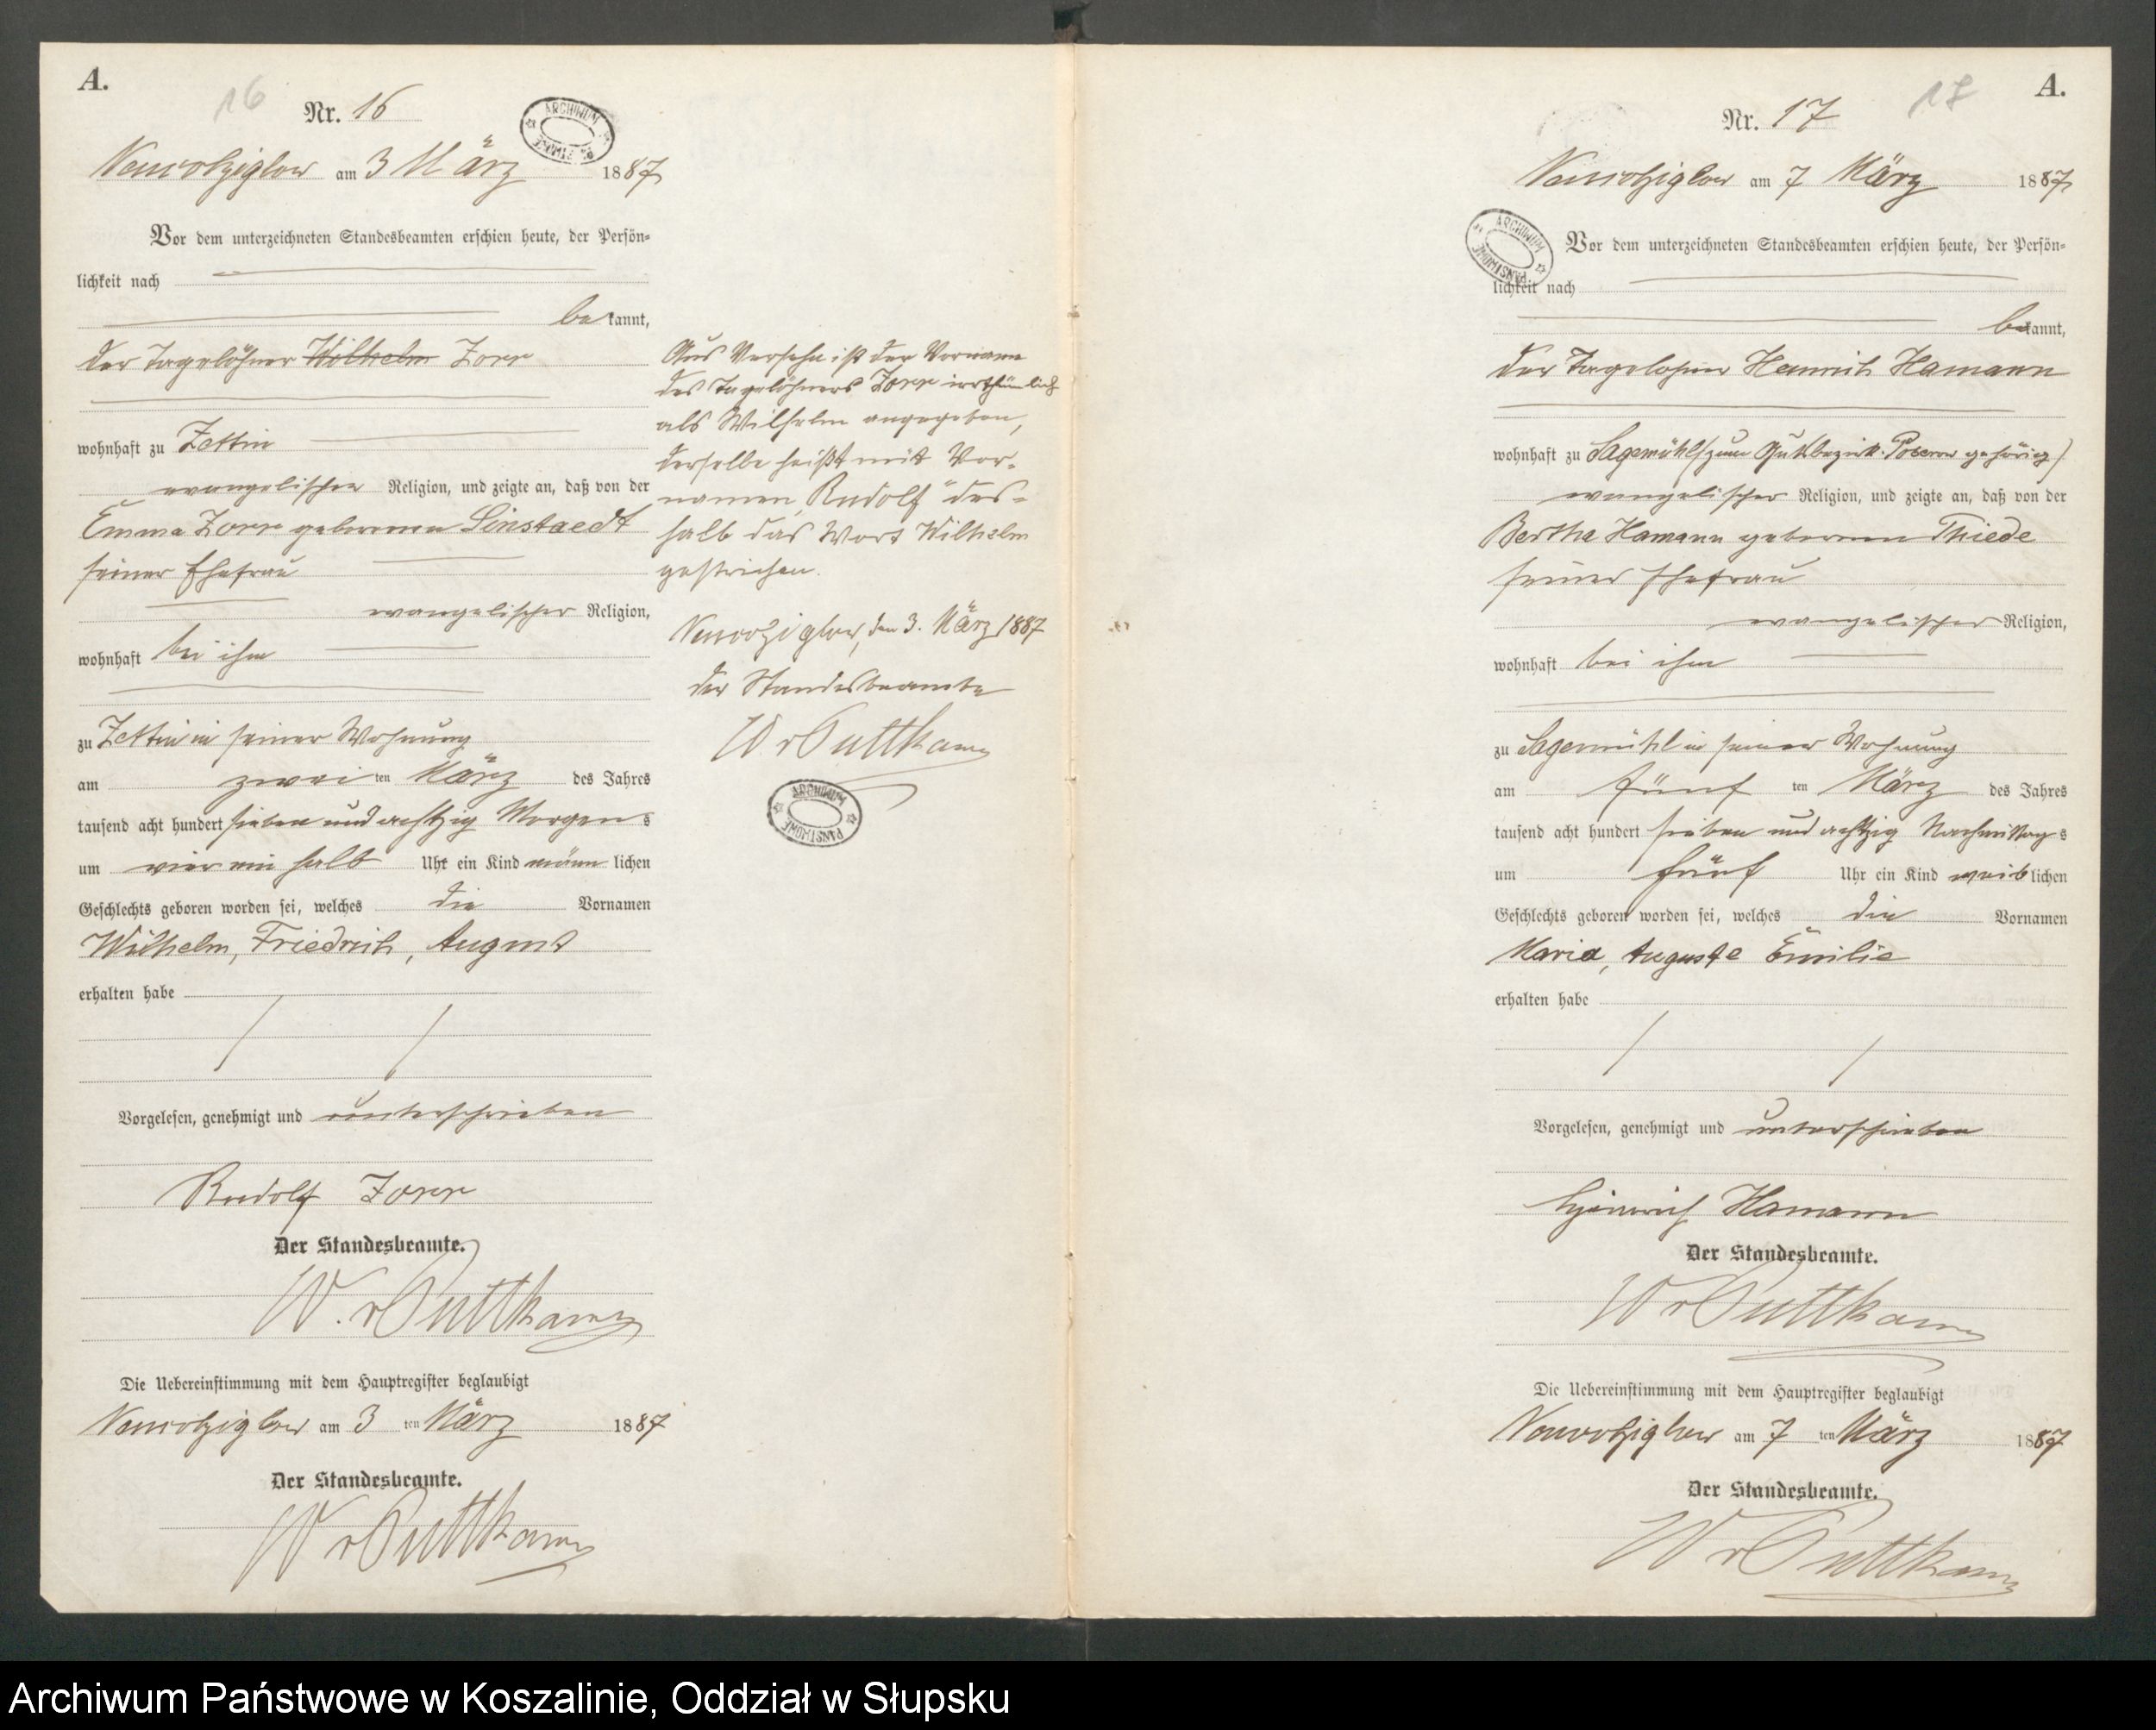 A.
16
Nr. 16
ARCHIWUM
Neuwolziglow am 3 März 1887
Vor dem unterzeichneten Standesbeamten erschien heute, der Persön-
lichkeit nach
bekannt,
der Tagelöhner Wilhelm Zorr
wohnhaft zu Zettin
evangelischer Religion, und zeigte an, daß von der
Emma Zorr geborenen Sinstaedt
seiner Ehefrau
evangelischer Religion,
wohnhaft bei ihm
zu Zettin in seiner Wohnung
am zweiten März des Jahres
tausend acht hundert sieben und achtzig Morgens
um vier ein halb Uhr ein Kind männlichen
Geschlechts geboren worden sei, welches die Vornamen
Wilhelm, Friedrich, August
erhalten habe
Vorgelesen, genehmigt und unterschrieben
Rudolf Zorr
Der Standesbeamte.
W. v Puttkamer
Die Uebereinstimmung mit dem Hauptregister beglaubigt
Neuwolziglow am 3 ten März 1887
Der Standesbeamte.
W v Puttkamer
Aus Versehn ist der Vorname
des Tagelöhners Zorr irrthümlich
als Wilhelm angegeben,
derselbe heißt mit Vor-
namen „Rudolf" des-
halb das Wort Wilhelm
gestrichen.
Neuwolziglow, den 3. März 1887
der Standesbeamte
W v Puttkamer
ARCHIWUM PAŃSTWOWE
A.
17
Nr. 17
Neuwolziglow am 7 März 1887
ARCHIWUM PAŃSTWOWE
Vor dem unterzeichneten Standesbeamten erschien heute, der Persön-
lichkeit nach
bekannt,
der Tagelöhner Heinrich Hamann
wohnhaft zu Sagemühl (zum Gutsbezirk gehörig)
evangelischer Religion, und zeigte an, daß von der
Bertha Hamann geborenen Thiede
seiner Ehefrau
evangelischer Religion,
wohnhaft bei ihm
zu Sagemühl in seiner Wohnung
am fünf ten März des Jahres
tausend acht hundert sieben und achtzig Nachmittags
um fünf Uhr ein Kind weiblichen
Geschlechts geboren worden sei, welches die Vornamen
Maria, Auguste Emilie
erhalten habe
Vorgelesen, genehmigt und unterschrieben
Heinrich Hamann
Der Standesbeamte.
W v Puttkamer
Die Uebereinstimmung mit dem Hauptregister beglaubigt
Neuwolziglow am 7 ten März 1887
Der Standesbeamte.
W v Puttkamer
Archiwum Państwowe w Koszalinie, Oddział w Słupsku